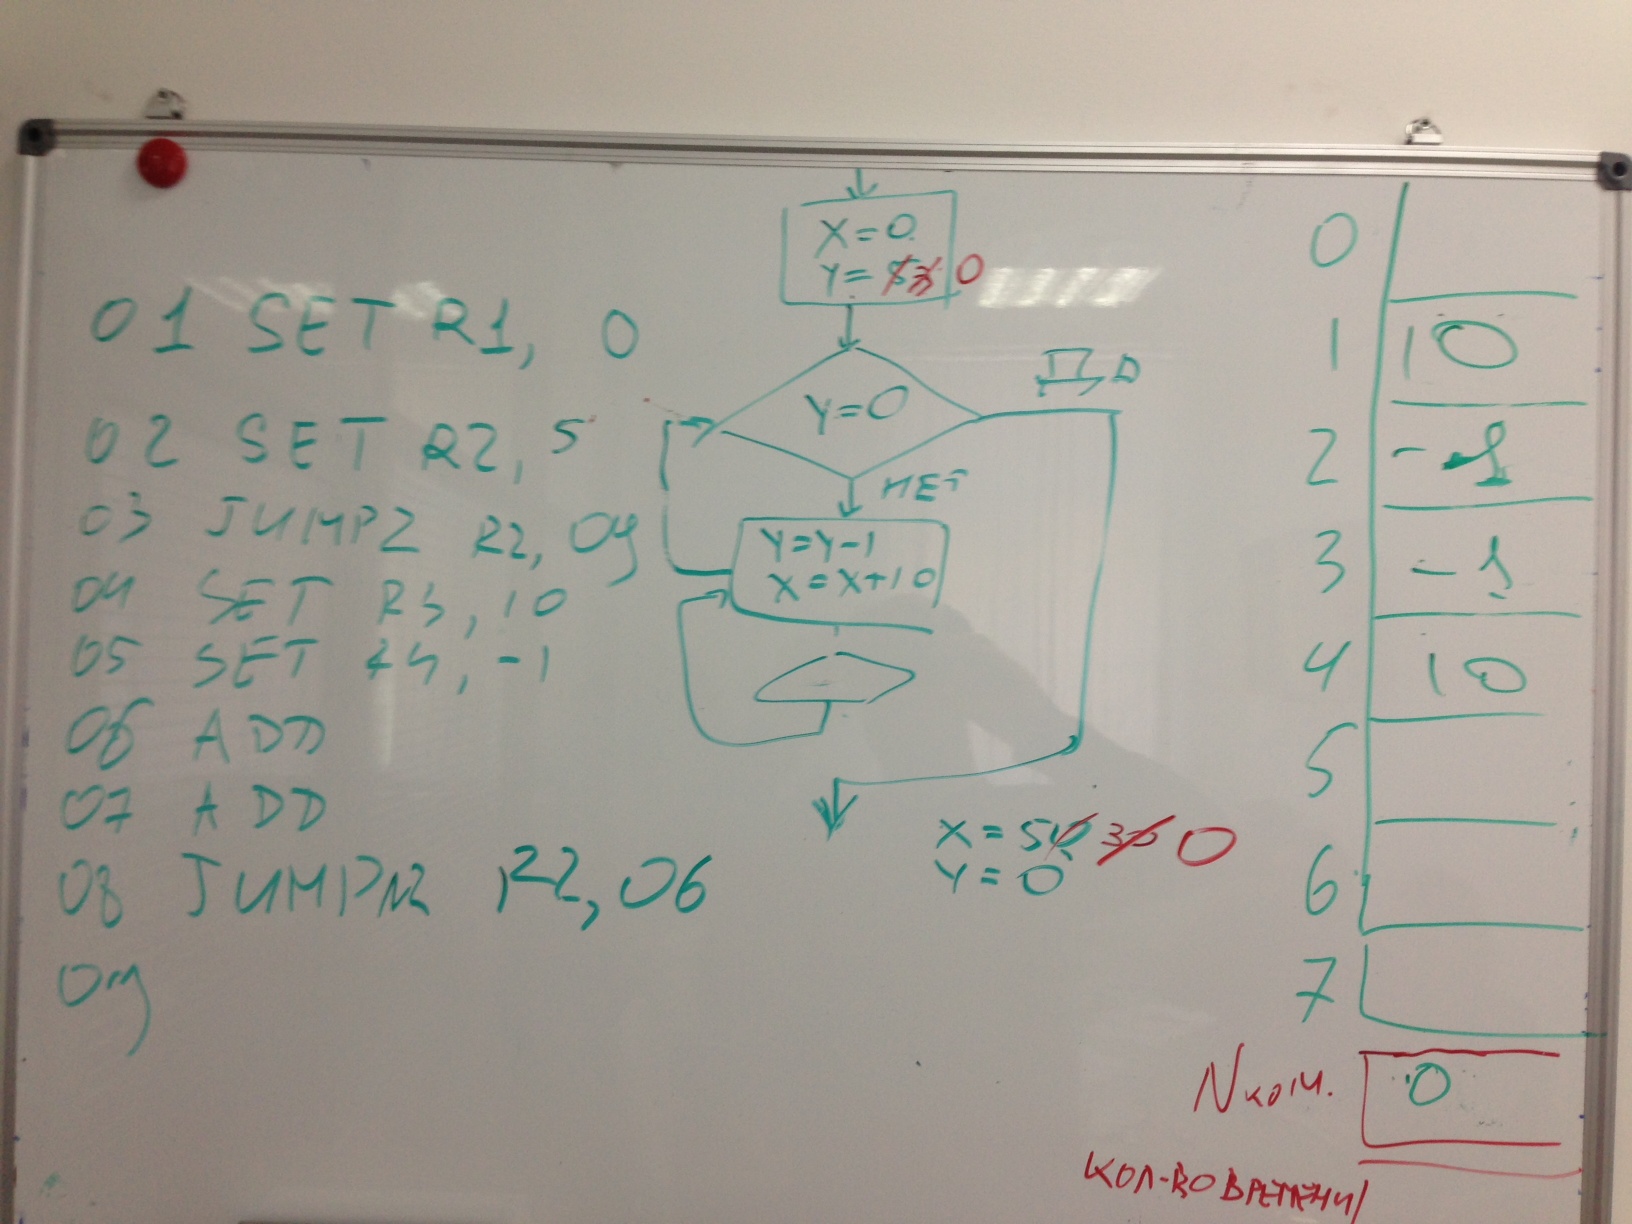 01 SET R1, 0
02 SET R2, 5
03 JUMPZ R2, 09
04 SET R3, 10
05 SET R4, -1
06 ADD
07 ADD
08 JUMPNZ R2, 06
09
X=0
Y=530
Y=0
ДА
НЕТ
Y=Y-1
X=X+10
X=50 30 0
Y=0
0
1 10
2 -1
3 -1
4 10
5
6
7
Nком. 0
КОЛ-ВО ВРЕМЕНИ